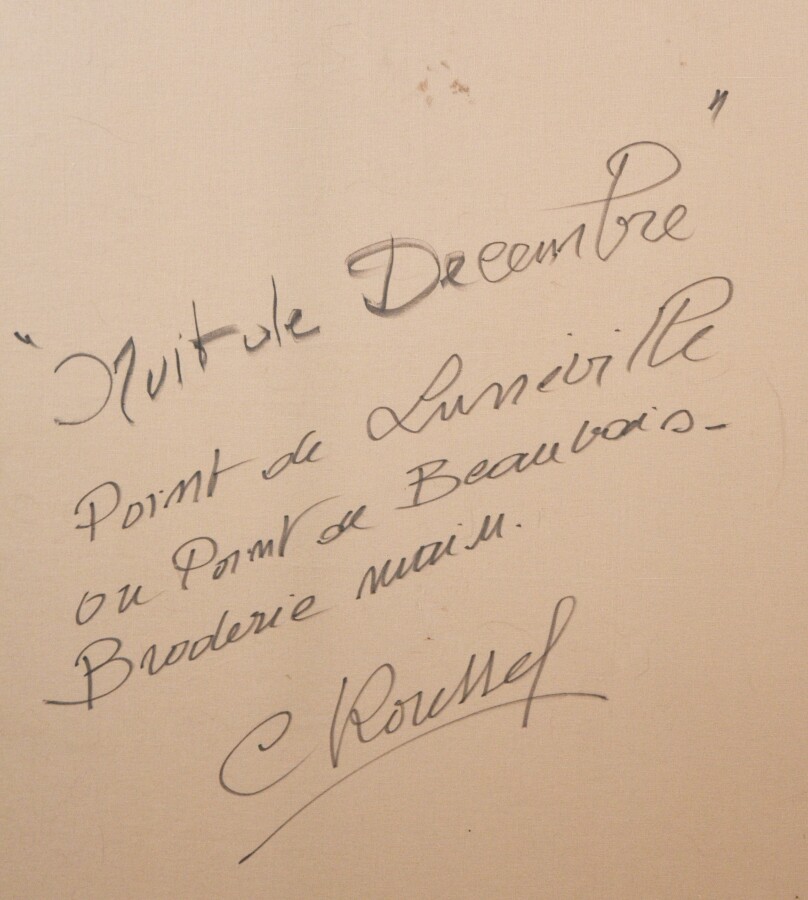 "Nuit de Decembre"
Point de Lunéville
ou Point de Beauvais -
Broderie main.
C Roussel